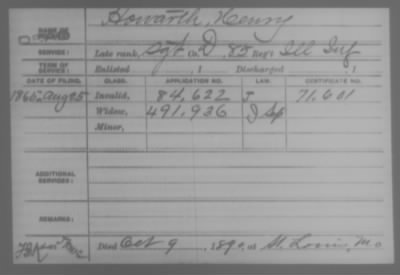 NAME OF SOLDIER: Howarth, Henry
SERVICE: Late rank, Sgt Co. D, 85 Reg't Ill Inf
TERM OF SERVICE: Enlisted 1 Discharged 1
DATE OF FILING. CLASS. APPLICATION NO. LAW. CERTIFICATE NO.
1865, Aug 25 Invalid, 84,622 71,601
Widow, 491,936
Minor,
ADDITIONAL SERVICES:
REMARKS:
Died Oct 9 1890, at St. Louis, Mo